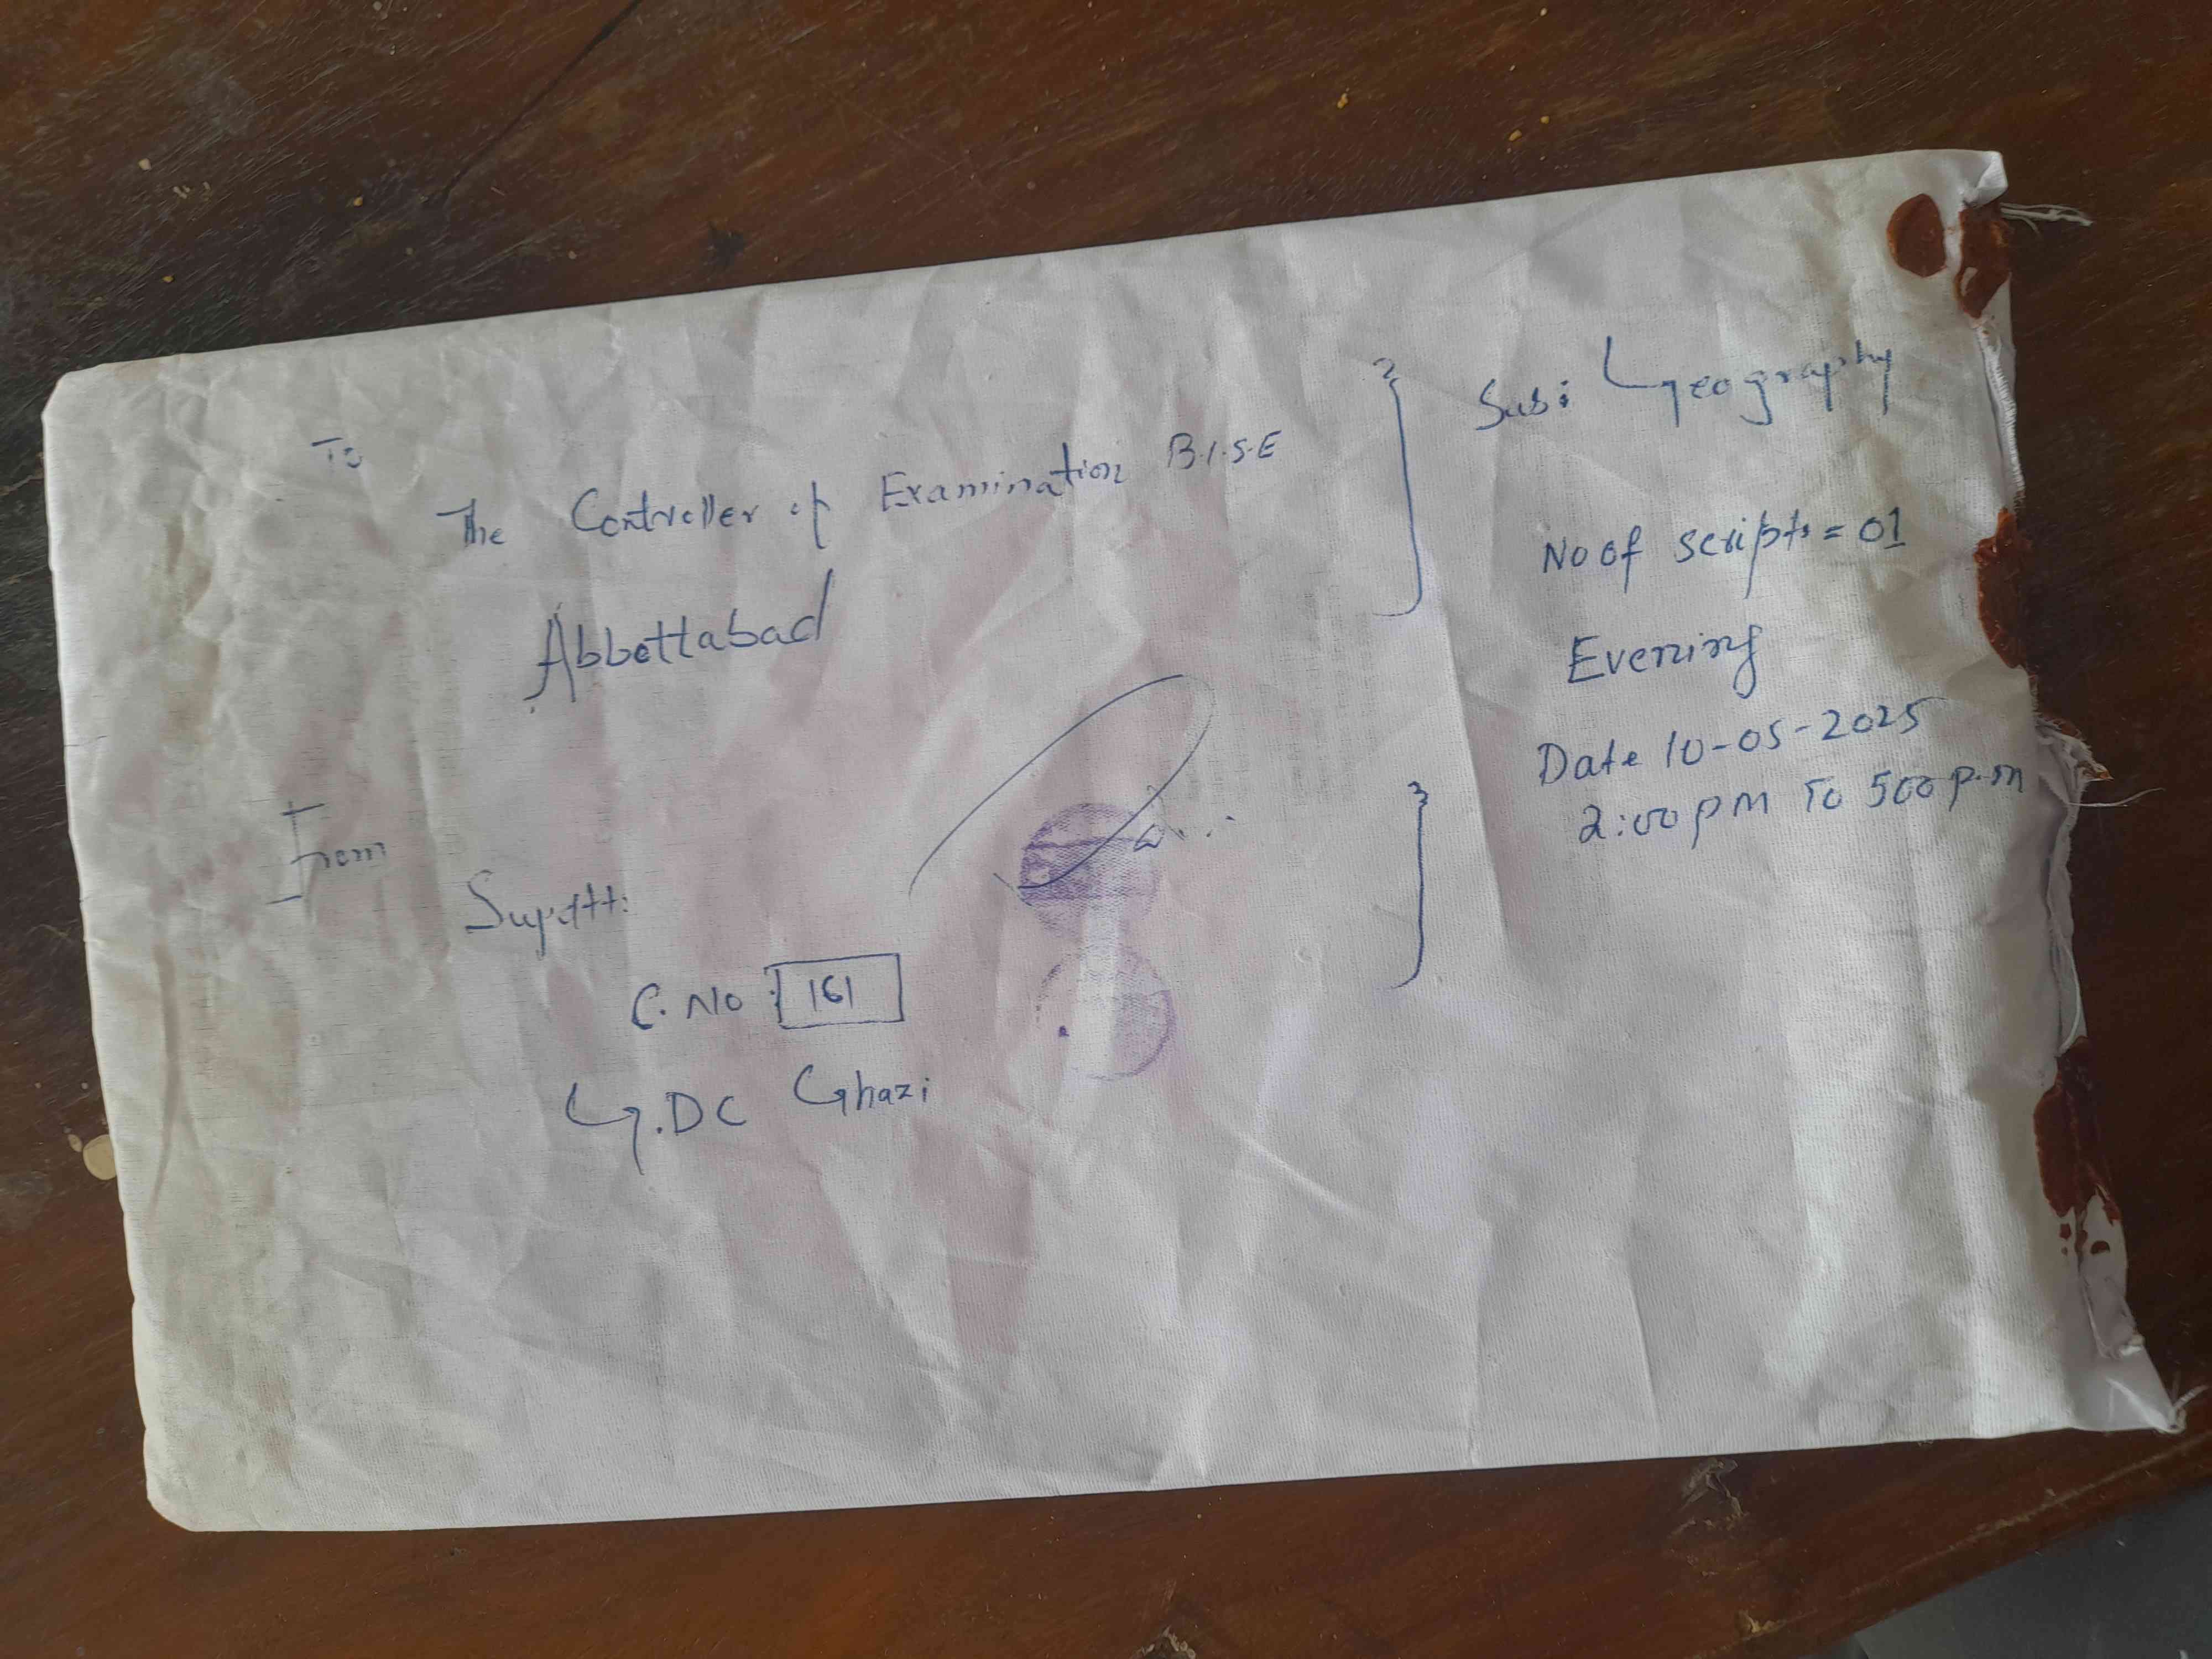 To
The Controller of Examination B.I.S.E
Abbottabad
From
Supdtt:
C. No: 161
G.DC Ghazi
Sub: Geography
No of scripts = 01
Evening
Date 10-05-2025
2:00 pm To 500 p.m